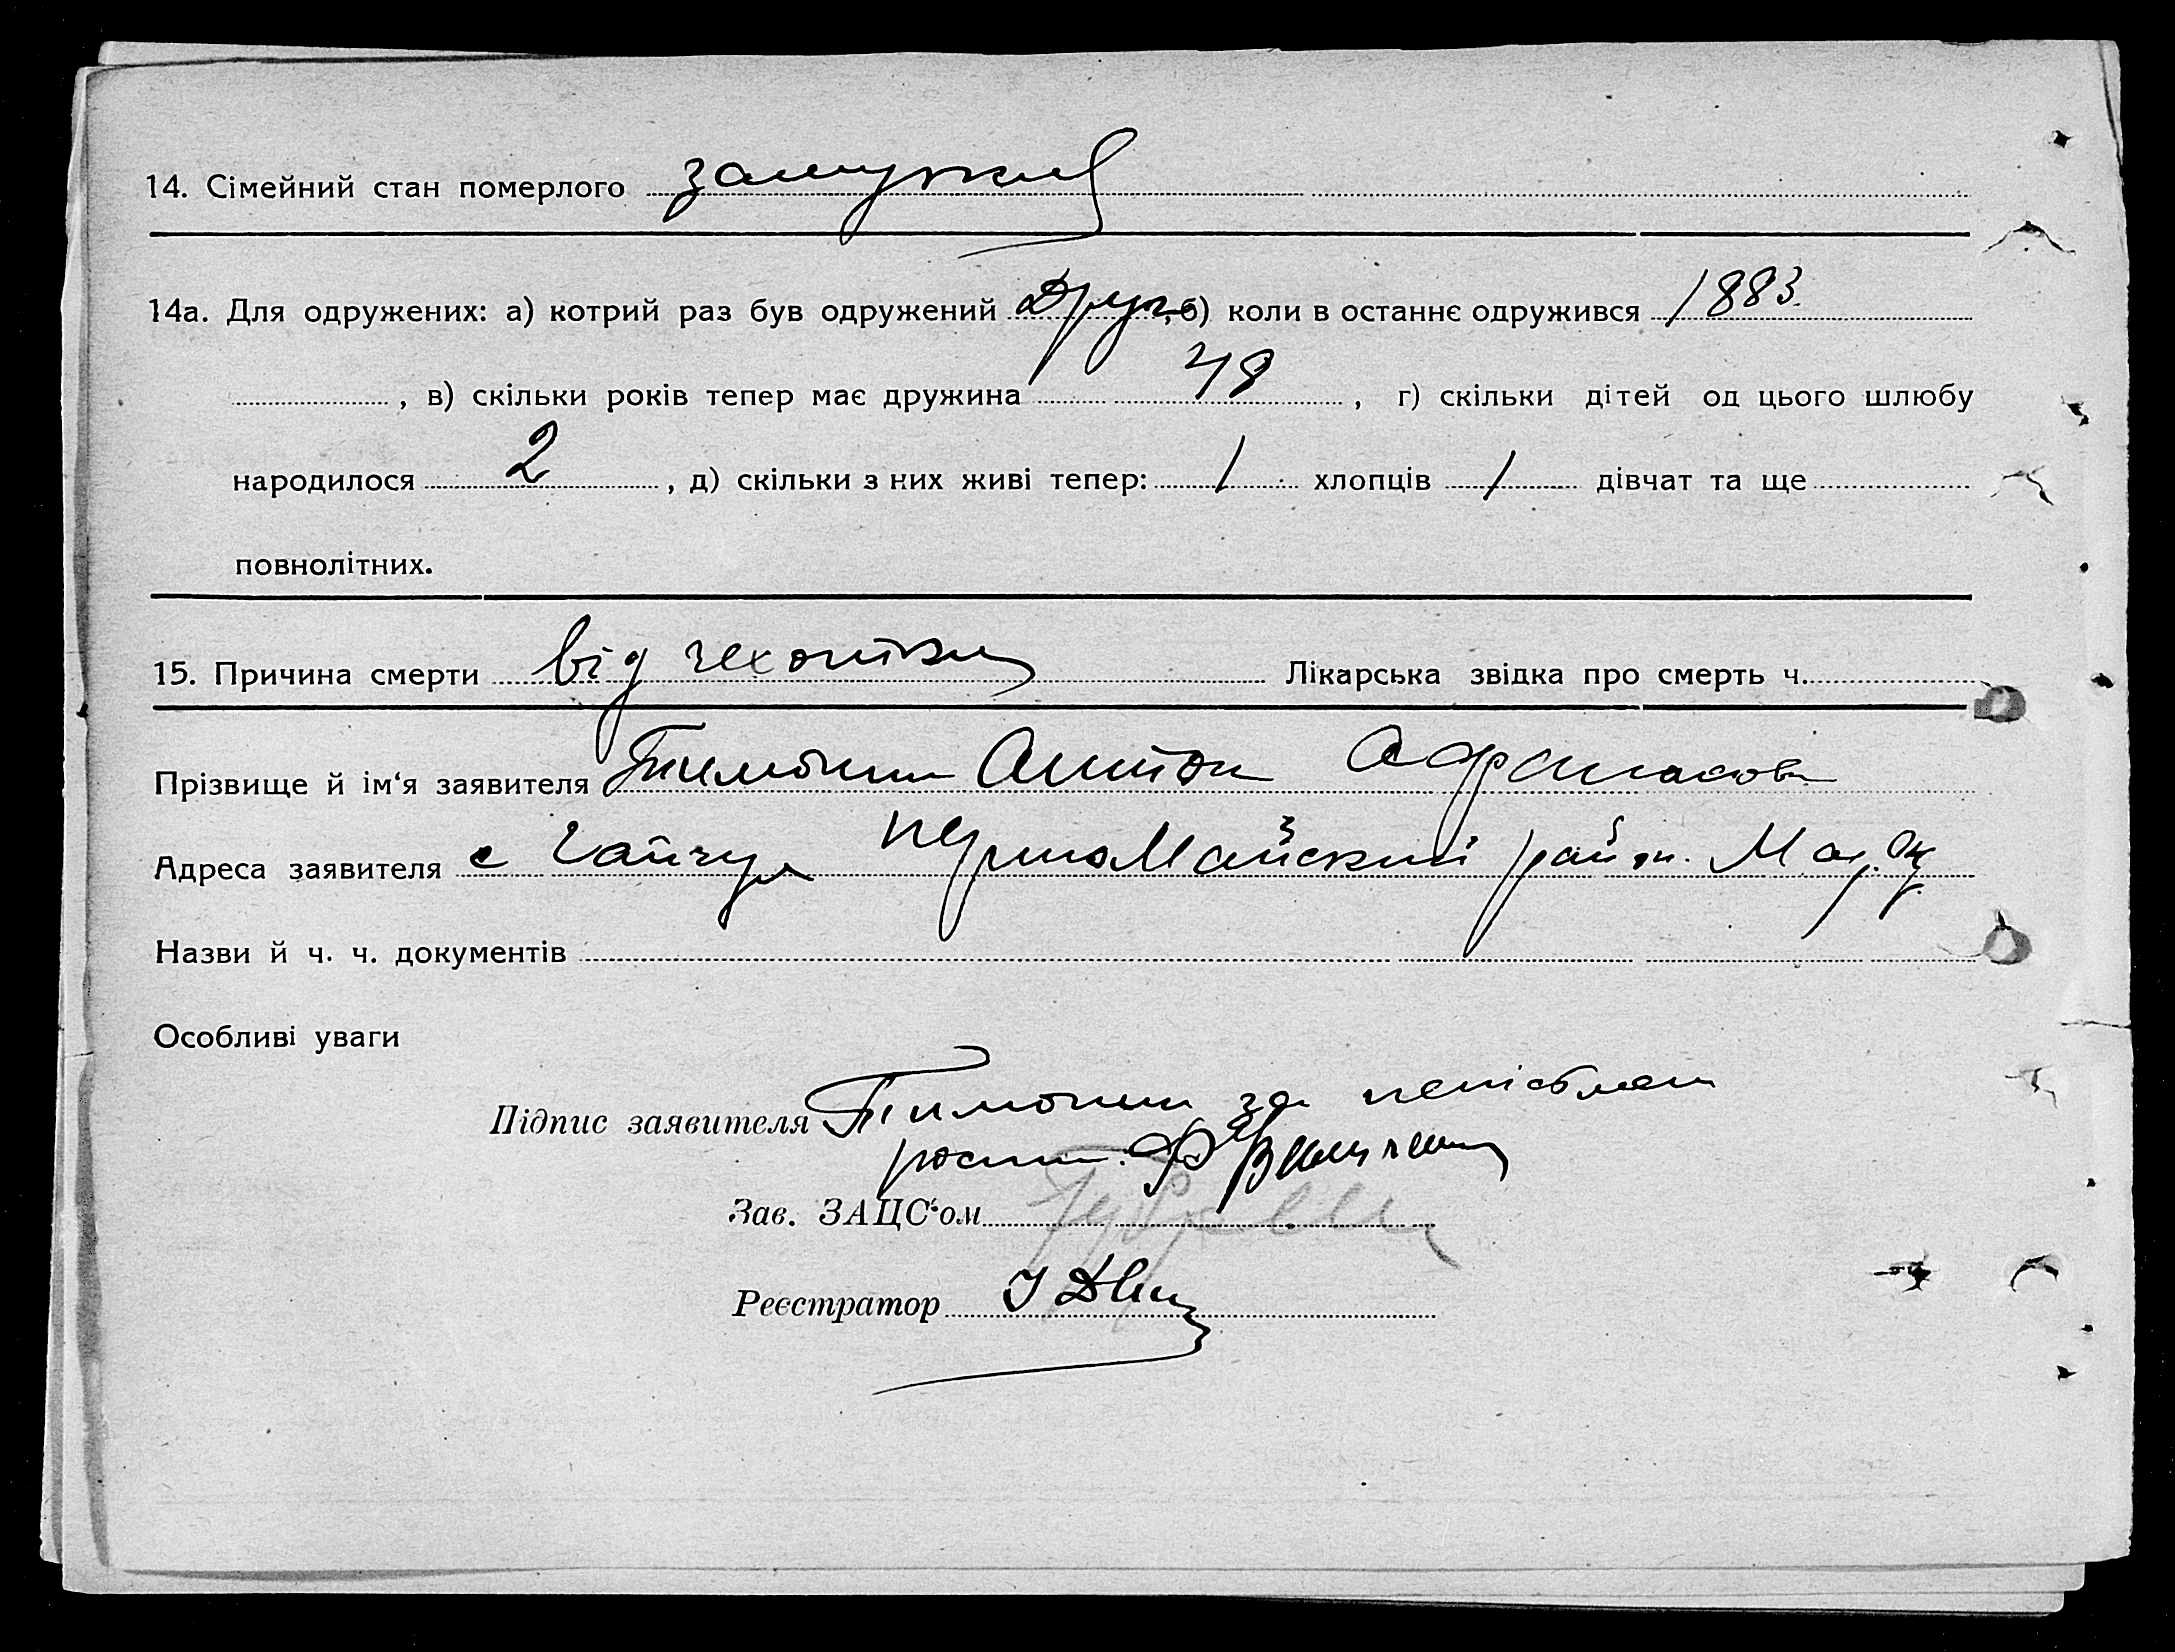 14. Сімейний стан померлого замужня
14а. Для одружених: а) котрий раз був одружений Друг, б) коли в останнє одружився 1883.
, в) скільки років тепер має дружина 48, г) скільки дітей од цього шлюбу
народилося 2, д) скільки з них живі тепер: 1 хлопців 1 дівчат та ще
повнолітних.
15. Причина смерти від чехотки Лікарська звідка про смерть ч.
Прізвище й ім‘я заявителя Тимошин Антон
Адреса заявителя с Гайчул район. Мар.
Назви й ч. ч. документів
Особливі уваги
Підпис заявителя Тимошин за
Зав. ЗАЦС‘ом
Реєстратор